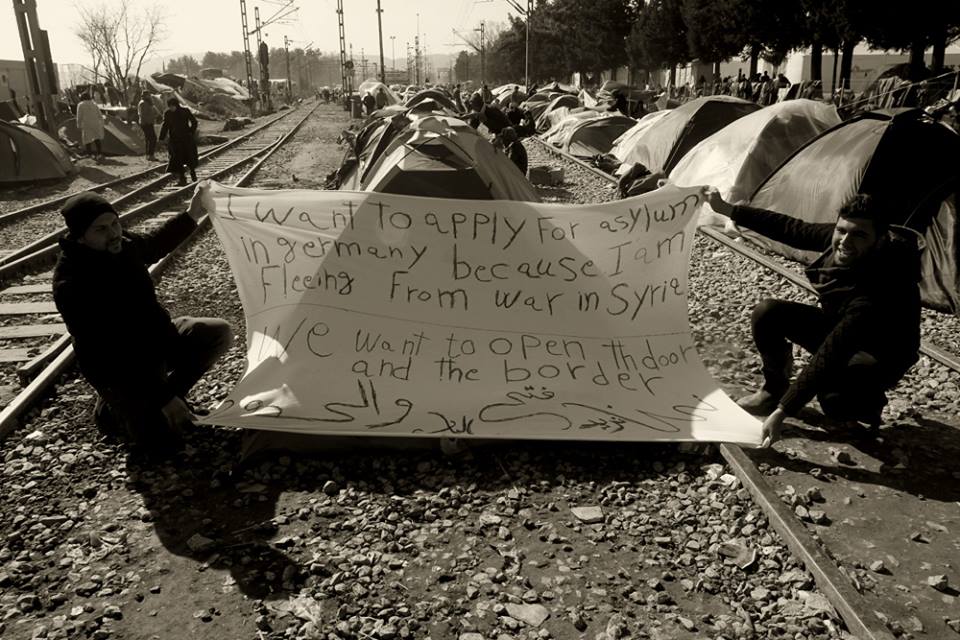 I want to apply For asylum
in germany because I am
Fleeing From war in Syria
We want to open thdoor
and the border